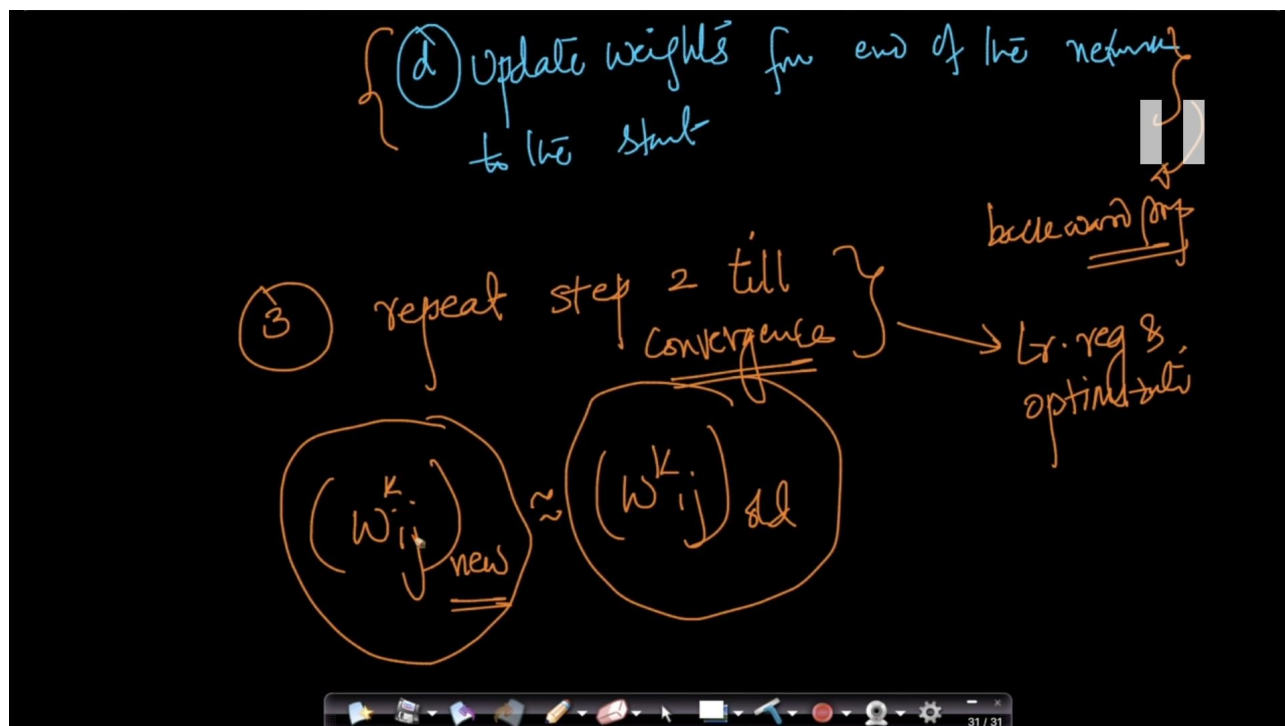 d Update weights from end of the network
to the start
backward prop
3 repeat step 2 till
convergence
Lr. reg &
optimizati
(W^k_ij)_new ≈ (W^k_ij)_old
31 / 31